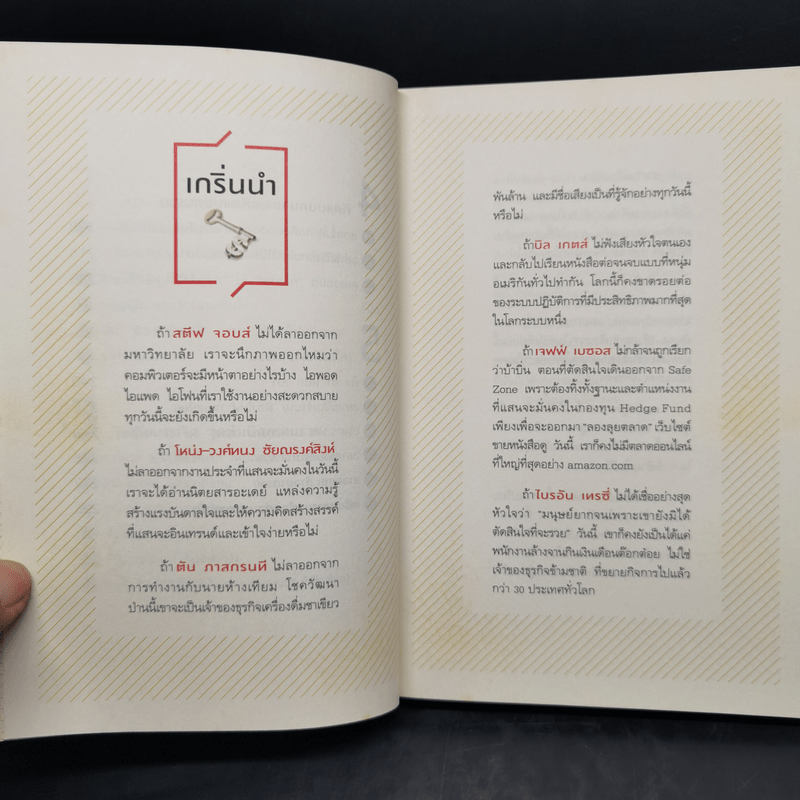 เกริ่นนำ
ถ้า สตีฟ จอบส์ ไม่ได้ลาออกจาก
มหาวิทยาลัย เราจะนึกภาพออกไหมว่า
คอมพิวเตอร์จะมีหน้าตาอย่างไรบ้าง ไอพอด
ไอแพด ไอโฟนที่เราใช้งานอย่างสะดวกสบาย
ทุกวันนี้จะยังเกิดขึ้นหรือไม่
ถ้า โหน่ง-วงศ์ทนง ชัยณรงค์สิงห์
ไม่ลาออกจากงานประจำที่แสนจะมั่นคงในวันนี้
เราจะได้อ่านนิตยสารอะเดย์ แหล่งความรู้
สร้างแรงบันดาลใจและให้ความคิดสร้างสรรค์
ที่แสนจะอินเทรนด์และเข้าใจง่ายหรือไม่
ถ้า ตัน ภาสกรนที ไม่ลาออกจาก
การทำงานกับนายห้างเทียม โชควัฒนา
ป่านนี้เขาจะเป็นเจ้าของธุรกิจเครื่องดื่มชาเขียว
พันล้าน และมีชื่อเสียงเป็นที่รู้จักอย่างทุกวันนี้
หรือไม่
ถ้าบิล เกตส์ ไม่ฟังเสียงหัวใจตนเอง
และกลับไปเรียนหนังสือต่อจนจบแบบที่หนุ่ม
อเมริกันทั่วไปทำกัน โลกนี้ก็คงขาดรอยต่อ
ของระบบปฏิบัติการที่มีประสิทธิภาพมากที่สุด
ในโลกระบบหนึ่ง
ถ้า เจฟฟ์ เบซอส ไม่กล้าจนถูกเรียก
ว่าบ้าบิ่น ตอนที่ตัดสินใจเดินออกจาก Safe
Zone เพราะต้องทิ้งทั้งฐานะและตำแหน่งงาน
ที่แสนจะมั่นคงในกองทุน Hedge Fund
เพียงเพื่อจะออกมา “ลองลุยตลาด” เว็บไซต์
ขายหนังสือดู วันนี้ เราก็คงไม่มีตลาดออนไลน์
ที่ใหญ่ที่สุดอย่าง amazon.com
ถ้า ไบรอัน เทรซี่ ไม่ได้เชื่ออย่างสุด
หัวใจว่า “มนุษย์ยากจนเพราะเขายังมิได้
ตัดสินใจที่จะรวย” วันนี้ เขาก็คงยังเป็นได้แค่
พนักงานล้างจานกินเงินเดือนต๊อกต๋อย ไม่ใช่
เจ้าของธุรกิจข้ามชาติ ที่ขยายกิจการไปแล้ว
กว่า 30 ประเทศทั่วโลก